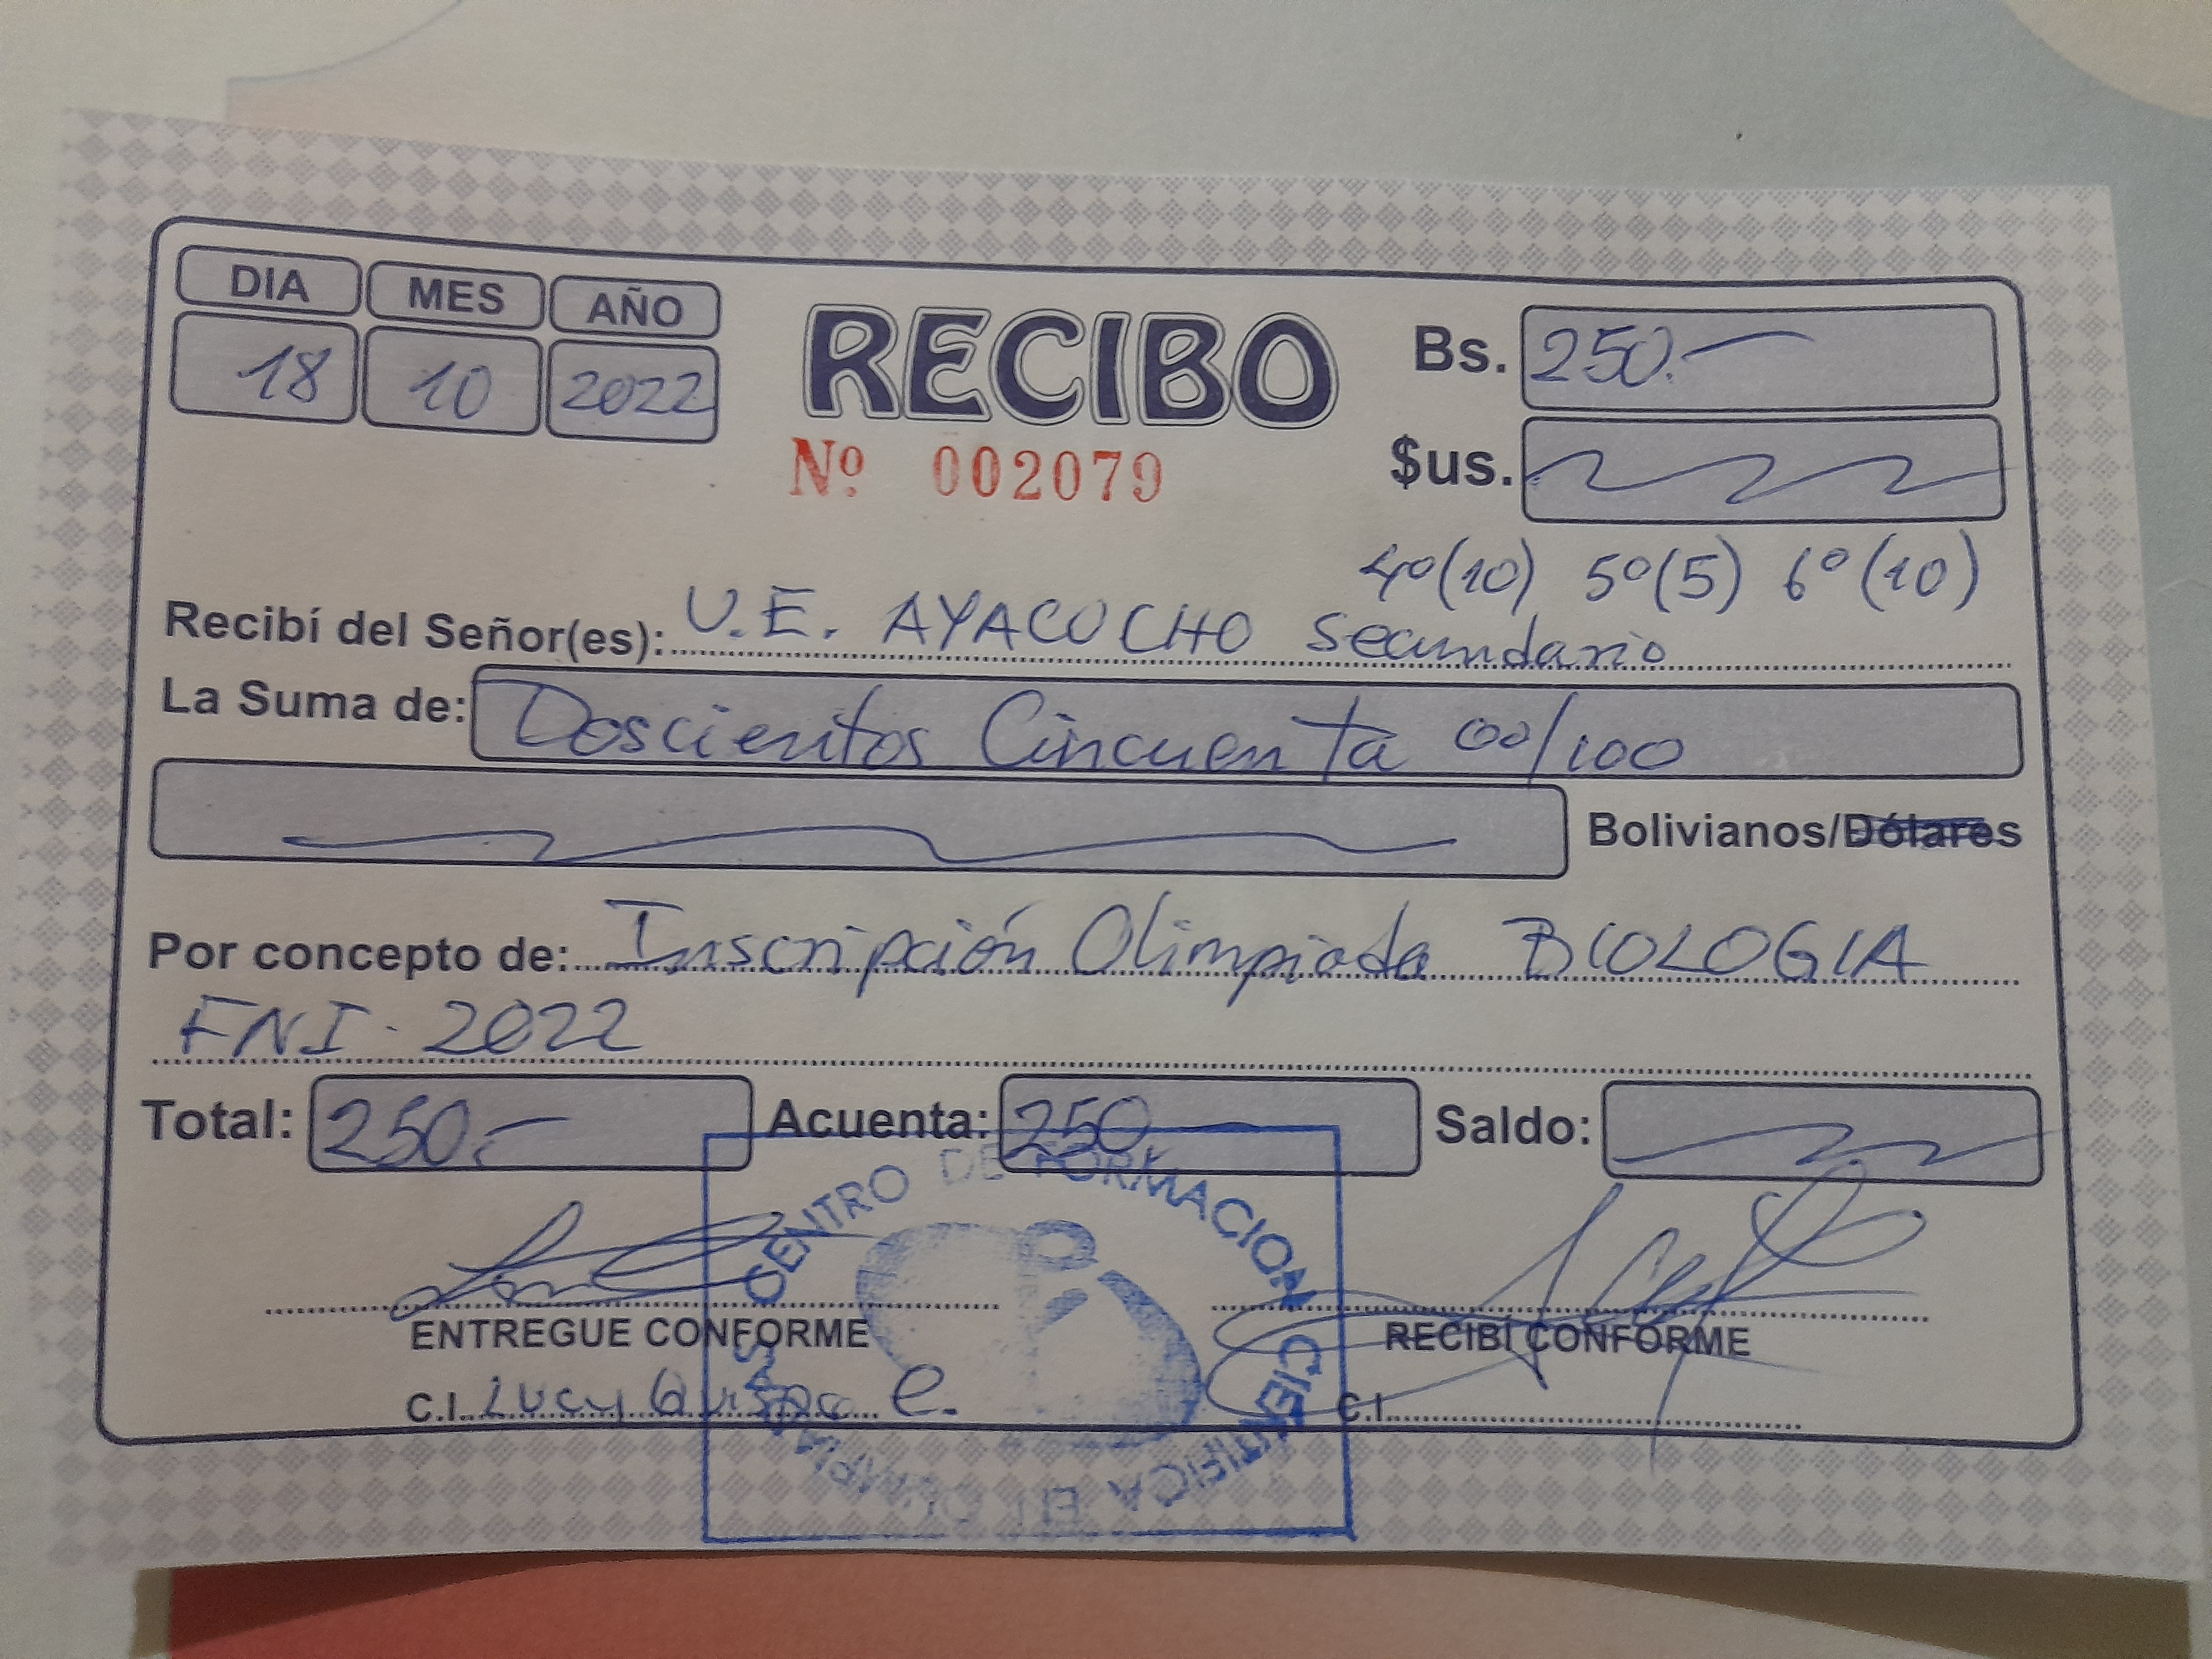 DIA MES AÑO
18 10 2022
RECIBO
Nº 002079
Bs. 250.-
$us.
4º(10) 5º(5) 6º(10)
Recibí del Señor(es): U.E. AYACUCHO secundario
La Suma de: Doscientos Cincuenta 00/100
Bolivianos/Dólares
Por concepto de: Inscripción Olimpiada BIOLOGIA
FNI-2022
Total: 250.- Acuenta: 250 Saldo:
ENTREGUE CONFORME RECIBI CONFORME
C.I. C.I.
CENTRO DE FORMACION CIENTIFICA